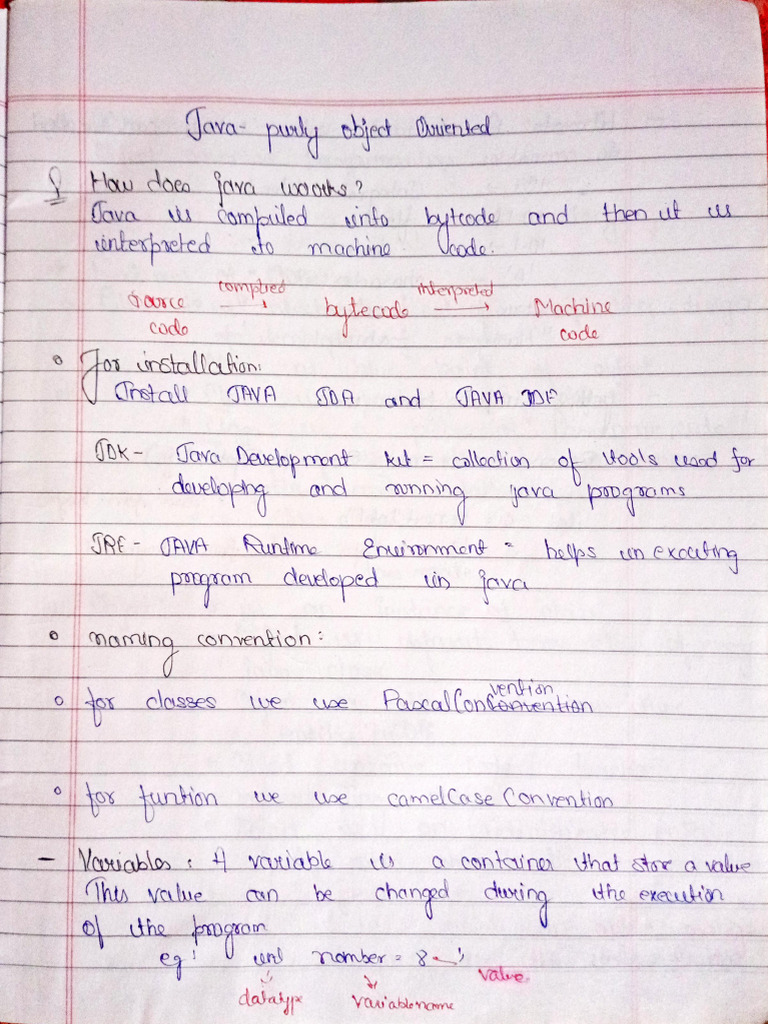 Java- purly object Oriented
Q How does java woorks?
Java is compiled into bytcode and then it is
interpreted to machine code.
Source code compiled → bytecode interpreted → Machine code
° for installation:
Install JAVA JDA and JAVA IDE
JDK - Java Development kit = collection of tools used for
developing and running java programs
JRE - JAVA Runtime Environment = helps in excuting
program developed in java
° naming convention:
° for classes we use PascalConvention
° for funtion we use camelCase Convention
- Variables: A variable is a container that stor a value
This value can be changed during the execution
of the program
eg: int number = 8 ;
value
datatype variablename